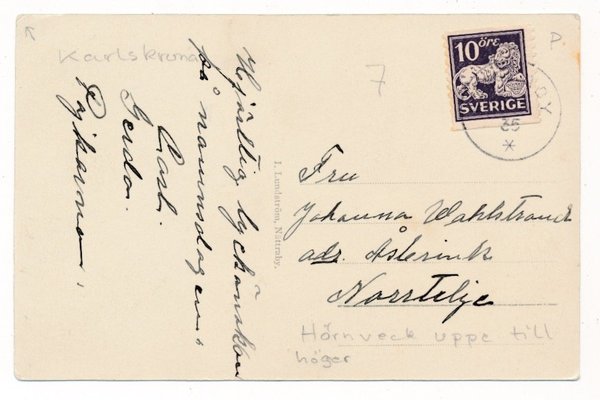 Karlskrona
Hjärtlig lyckönskan
på namnsdagen,
Carl.
Gerda.
Pojkarna,
I. Lundström, Nättraby.
7
P.
10 öre
SVERIGE
35
Fru
Johanna Wahlstrand
adr. Åsterink
Norrtelje
Hörnveck uppe till
höger